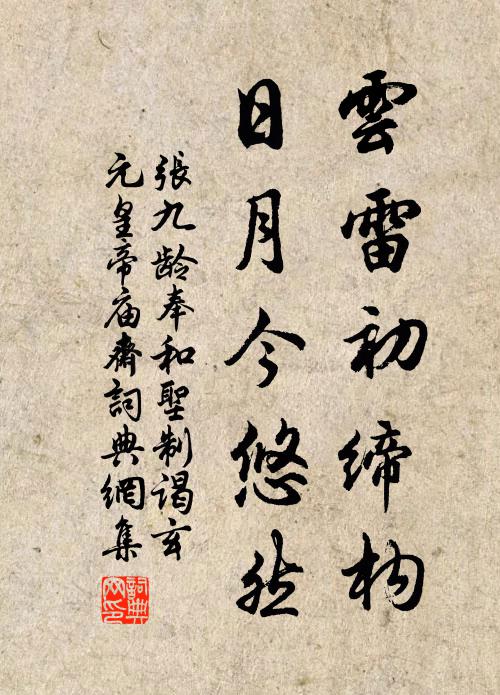 雲雷初締构
日月今悠然
張九龄奉和聖制謁玄
元皇帝庙齋詞典網集
詞典
网印